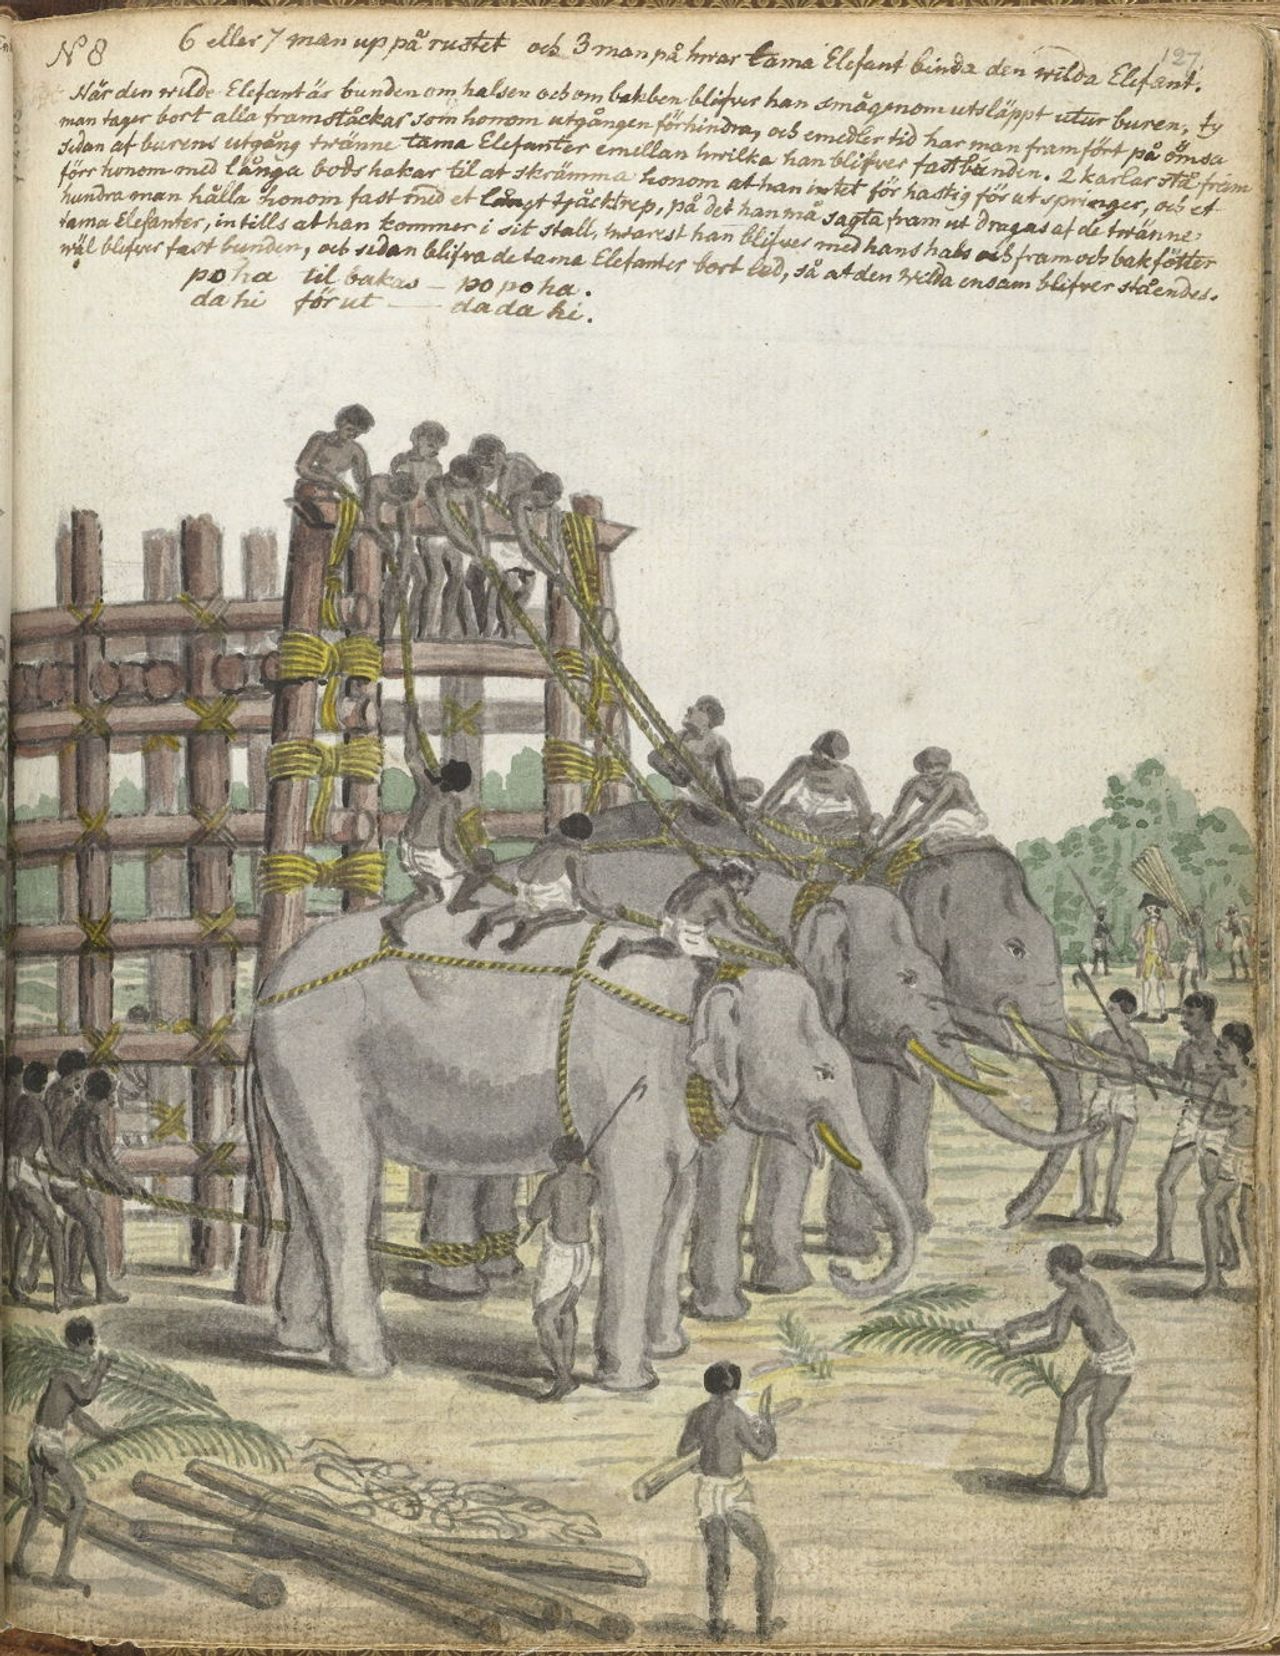 N⁰ 8 6 eller 7 man up på rustet och 3 man på hvar tama Elefant binda den wilda Elefant. 127
När den wilde Elefant är bunden om halsen och om bakben blifver han smågenom utsläppt utur buren, ty
man tager bort alla framståckar som honom utgången förhindra, och emedler tid har man framfört på ömsa
sidan af burens utgång tvänne tama Elefanter emellan hvilka han blifver fastbunden. 2 karlar stå fram
förr honom med långa bods hakar til at skrämma honom at han intet för hastig förut springer, och et
hundra man hålla honom fast med et långt tjäckt rep, på det han må sagta fram ut dragas af de tvänne
tama Elefanter, in tills at han kommer i sit stall, hvarest han blifver med hans hals och fram och bakfötter
wäl blifver fast bunden, och sidan blifva de tama Elefanter bort led, så at den wilda ensam blifver ståendes.
po ha til bakas — po po ha.
da hi förut — da da hi.